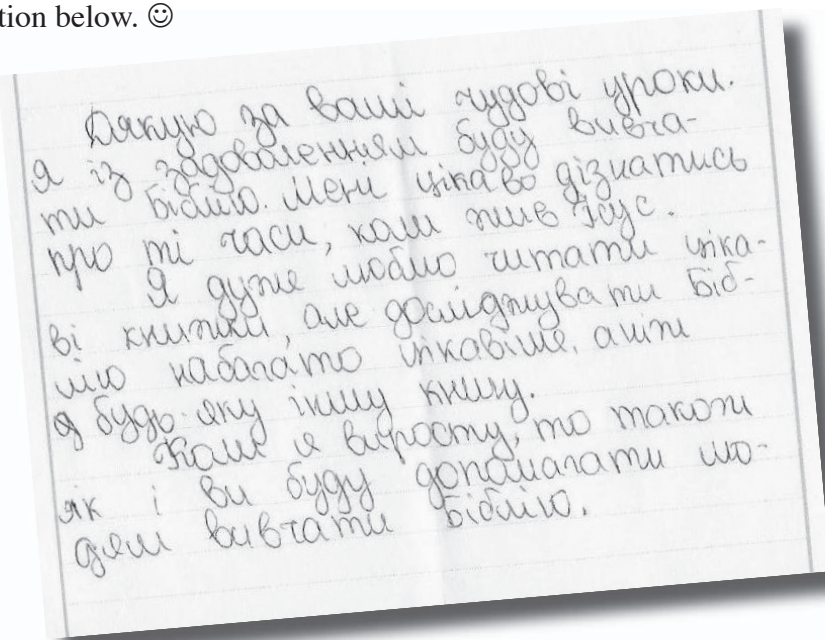 tion below. ☺
Дякую за ваші чудові уроки.
Я із задоволенням буду вивча-
ти Біблію. Мені цікаво дізнатись
про ті часи, коли жив Ісус.
Я дуже люблю читати ціка-
ві книжки, але досліджувати Біб-
лію набагато цікавіше, аніж
будь-яку іншу книгу.
Коли я виросту, то також
як і ви буду допомагати лю-
дям вивчати Біблію.